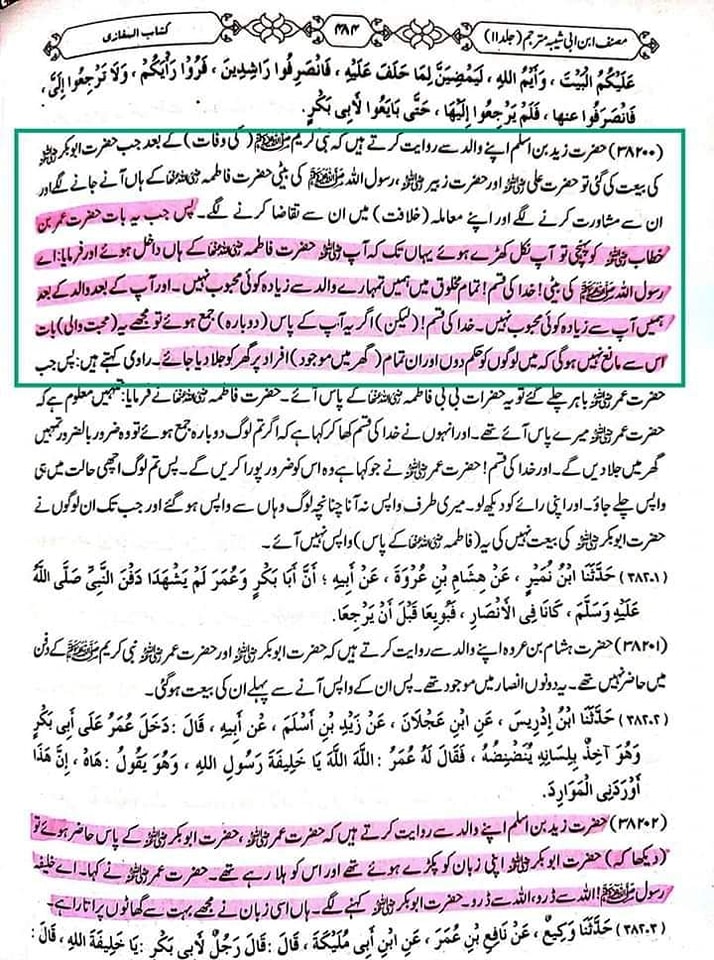 مصنف ابن ابی شیبہ مترجم (جلد ۱۱)
۴۸۴
کتاب المغازی
عَلَيْكُمُ الْبَيْتَ ، وَأَيْمُ اللهِ ، لَيَمْضِيَنَّ لِمَا حَلَفَ عَلَيْهِ ، فَانْصَرِفُوا رَاشِدِينَ ، فَرُوْا رَأْيَكُمْ ، وَلَا تَرْجِعُوا إِلَيَّ ،
فَانْصَرَفُوا عنها ، فَلَمْ يَرْجِعُوا إِلَيْهَا ، حَتَّى بَايَعُوا لأَبِي بَكْرٍ.
(۳۸۲۰۰) حضرت زید بن اسلم اپنے والد سے روایت کرتے ہیں کہ نبی کریم ﷺ ( کی وفات) کے بعد جب حضرت ابوبکر رضی اللہ عنہ
کی بیعت کی گئی تو حضرت علی رضی اللہ عنہ اور حضرت زبیر رضی اللہ عنہ ، رسول اللہ ﷺ کی بیٹی حضرت فاطمہ رضی اللہ عنہا کے ہاں آنے جانے لگے اور
ان سے مشاورت کرنے لگے اور اپنے معاملہ (خلافت) میں ان سے تقاضا کرنے لگے۔ پس جب یہ بات حضرت عمر بن
خطاب رضی اللہ عنہ کو پہنچی تو آپ نکل کھڑے ہوئے یہاں تک کہ آپ رضی اللہ عنہ حضرت فاطمہ رضی اللہ عنہا کے ہاں داخل ہوئے اور فرمایا: اے
رسول اللہ ﷺ کی بیٹی! خدا کی قسم! تمام مخلوق میں ہمیں تمہارے والد سے زیادہ کوئی محبوب نہیں۔ اور آپ کے بعد والد کے بعد
ہمیں آپ سے زیادہ کوئی محبوب نہیں۔ خدا کی قسم! (لیکن) اگر یہ آپ کے پاس (دوبارہ) جمع ہوئے تو مجھے یہ (محبت والی) بات
اس سے مانع نہیں ہوگی کہ میں لوگوں کو حکم دوں اور ان تمام (گھر میں موجود) افراد پر گھر کو جلا دیا جائے۔ راوی کہتے ہیں: پس جب
حضرت عمر رضی اللہ عنہ باہر چلے گئے تو یہ حضرات بی بی فاطمہ رضی اللہ عنہا کے پاس آئے۔ حضرت فاطمہ رضی اللہ عنہا نے فرمایا: تمہیں معلوم ہے کہ
حضرت عمر رضی اللہ عنہ میرے پاس آئے تھے۔ اور انہوں نے خدا کی قسم کھا کر کہا ہے کہ اگر تم لوگ دوبارہ جمع ہوئے تو وہ ضرور بالضرور تمہیں
گھر میں جلا دیں گے۔ اور خدا کی قسم! حضرت عمر رضی اللہ عنہ نے جو کہا ہے وہ اس کو ضرور پورا کریں گے۔ پس تم لوگ اچھی حالت میں ہی
واپس چلے جاؤ۔ اور اپنی رائے کو دیکھ لو۔ میری طرف واپس نہ آنا چنانچہ لوگ وہاں سے واپس ہو گئے اور جب تک ان لوگوں نے
حضرت ابوبکر رضی اللہ عنہ کی بیعت نہیں کی یہ (فاطمہ رضی اللہ عنہا کے پاس) واپس نہیں آئے۔
(۳۸۲۰۱) حَدَّثَنَا ابْنُ نُمَيْرٍ ، عَنْ هِشَامِ بْنِ عُرْوَةَ ، عَنْ أَبِيهِ ؛ أَنَّ أَبَا بَكْرٍ وَعُمَرَ لَمْ يَشْهَدَا دَفْنَ النَّبِيِّ صَلَّى اللَّهُ
عَلَيْهِ وَسَلَّمَ ، كَانَا فِي الأَنْصَارِ ، فَبُويِعَا قَبْلَ أَنْ يَرْجِعَا.
(۳۸۲۰۱) حضرت ہشام بن عروہ اپنے والد سے روایت کرتے ہیں کہ حضرت ابوبکر رضی اللہ عنہ اور حضرت عمر رضی اللہ عنہ نبی کریم ﷺ کے دفن
میں حاضر نہیں تھے۔ یہ دونوں انصار میں موجود تھے۔ پس ان کے واپس آنے سے پہلے ان کی بیعت ہوگئی۔
(۳۸۲۰۲) حَدَّثَنَا ابْنُ إِدْرِيسَ ، عَنِ ابْنِ عَجْلَانَ ، عَنْ زَيْدِ بْنِ أَسْلَمَ ، عَنْ أَبِيهِ ، قَالَ : دَخَلَ عُمَرُ عَلَى أَبِي بَكْرٍ
وَهُوَ آخِذٌ بِلِسَانِهِ يُنَضْنِضُهُ ، فَقَالَ لَهُ عُمَرُ : اللَّهَ اللَّهَ يَا خَلِيفَةَ رَسُولِ اللهِ ، وَهُوَ يَقُولُ : هَاهْ ، إِنَّ هَذَا
أَوْرَدَنِي الْمَوَارِدَ.
(۳۸۲۰۲) حضرت زید بن اسلم اپنے والد سے روایت کرتے ہیں کہ حضرت عمر رضی اللہ عنہ ، حضرت ابوبکر رضی اللہ عنہ کے پاس حاضر ہوئے تو
(دیکھا کہ) حضرت ابوبکر رضی اللہ عنہ اپنی زبان کو پکڑے ہوئے تھے اور اس کو ہلا رہے تھے۔ حضرت عمر رضی اللہ عنہ نے کہا۔ اے خلیفہ
رسول ﷺ! اللہ سے ڈرو، اللہ سے ڈرو۔ حضرت ابوبکر رضی اللہ عنہ کہنے لگے۔ ہاں اسی زبان نے مجھے بہت سے گھاٹوں پر اتارا ہے۔
(۳۸۲۰۳) حَدَّثَنَا وَكِيعٌ ، عَنْ نَافِعِ بْنِ عُمَرَ ، عَنِ ابْنِ أَبِي مُلَيْكَةَ ، قَالَ : قَالَ رَجُلٌ لأَبِي بَكْرٍ : يَا خَلِيفَةَ اللهِ ، قَالَ :